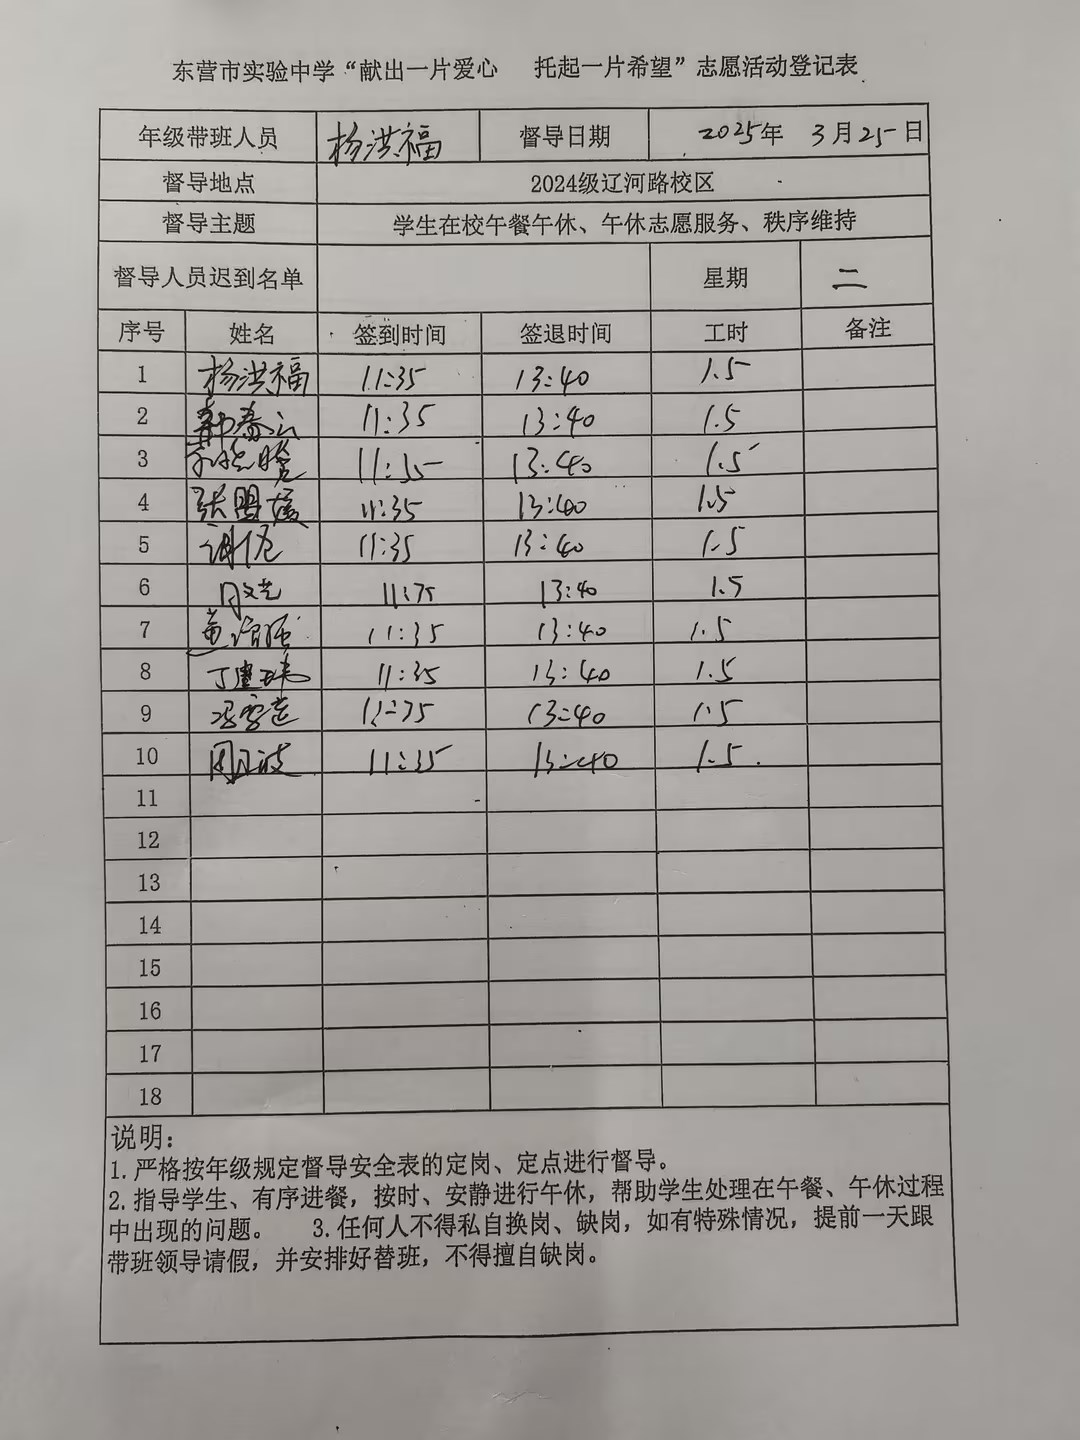 东营市实验中学“献出一片爱心 托起一片希望”志愿活动登记表
年级带班人员 杨洪福 督导日期 2025年 3月25日
督导地点 2024级辽河路校区
督导主题 学生在校午餐午休、午休志愿服务、秩序维持
督导人员迟到名单 星期 二
序号 姓名 签到时间 签退时间 工时 备注
1 杨洪福 11:35 13:40 1.5
2 11:35 13:40 1.5
3 11:35 13:40 1.5
4 张盟媛 11:35 13:40 1.5
5 谢优 11:35 13:40 1.5
6 11:35 13:40 1.5
7 11:35 13:40 1.5
8 丁建玮 11:35 13:40 1.5
9 冯雪莲 11:35 13:40 1.5
10 周卫波 11:35 13:40 1.5
11
12
13
14
15
16
17
18
说明：
1.严格按年级规定督导安全表的定岗、定点进行督导。
2.指导学生、有序进餐，按时、安静进行午休，帮助学生处理在午餐、午休过程
中出现的问题。 3.任何人不得私自换岗、缺岗，如有特殊情况，提前一天跟
带班领导请假，并安排好替班，不得擅自缺岗。